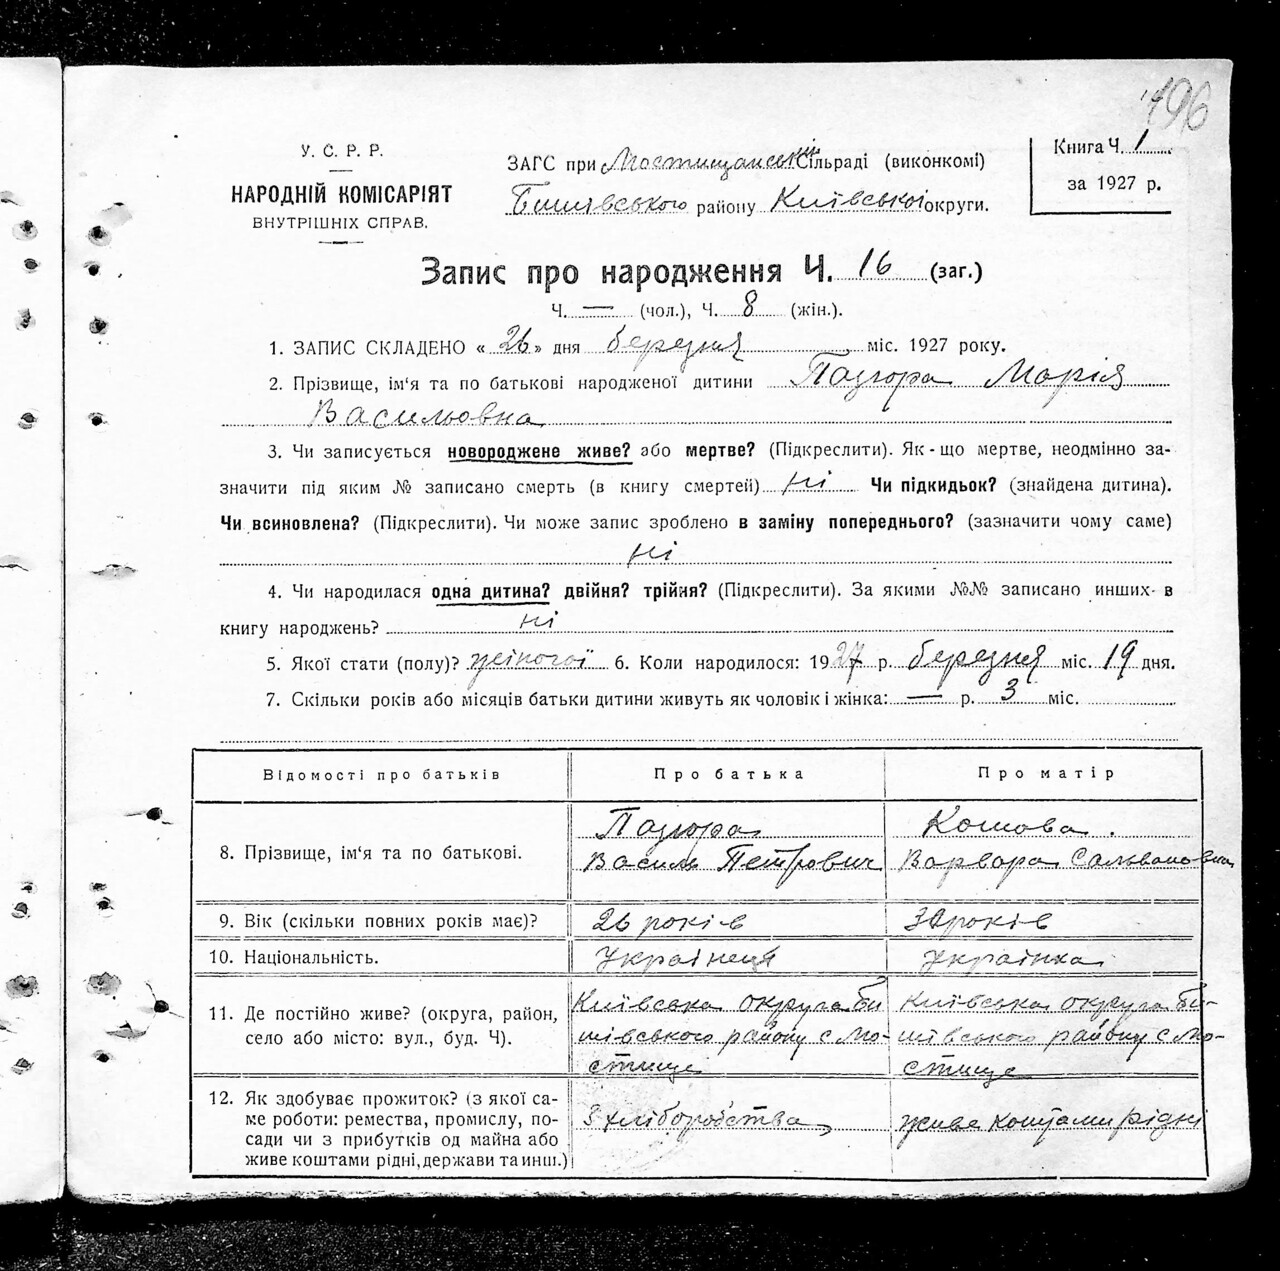 196
У. С. Р. Р.
НАРОДНІЙ КОМІСАРІЯТ
ВНУТРІШНІХ СПРАВ.
ЗАГС при Мостищанській Сільраді (виконкомі)
Бишівського району Київської округи.
Книга Ч. 1
за 1927 р.
Запис про народження Ч. 16 (заг.)
Ч. — (чол.), Ч. 8 (жін.).
1. ЗАПИС СКЛАДЕНО « 26 » дня березня міс. 1927 року.
2. Прізвище, ім'я та по батькові народженої дитини Пазюра Марія
Васильовна
3. Чи записується новороджене живе? або мертве? (Підкреслити). Як-що мертве, неодмінно за-
значити під яким № записано смерть (в книгу смертей) ні Чи підкидьок? (знайдена дитина).
Чи всиновлена? (Підкреслити). Чи може запис зроблено в заміну попереднього? (зазначити чому саме)
ні
4. Чи народилася одна дитина? двійня? трійня? (Підкреслити). За якими №№ записано инших в
книгу народжень? ні
5. Якої стати (полу)? жіночої 6. Коли народилося: 1927 р. березня міс. 19 дня.
7. Скільки років або місяців батьки дитини живуть як чоловік і жінка: — р. 3 міс.
Відомості про батьків Про батька Про матір
8. Прізвище, ім'я та по батькові.
Пазюра
Василь Петрович
Кошова.
Варвара
9. Вік (скільки повних років має)? 26 років років
10. Національність. Українець Українка
11. Де постійно живе? (округа, район,
село або місто: вул., буд. Ч).
Київська округа Би
шівського району с Мо-
стище
Київська округа Би-
шівського району с Мо-
стище
12. Як здобуває прожиток? (з якої са-
ме роботи: ремества, промислу, по-
сади чи з прибутків од майна або
живе коштами рідні, держави та инш.)
З хліборобства
живе коштами рідні